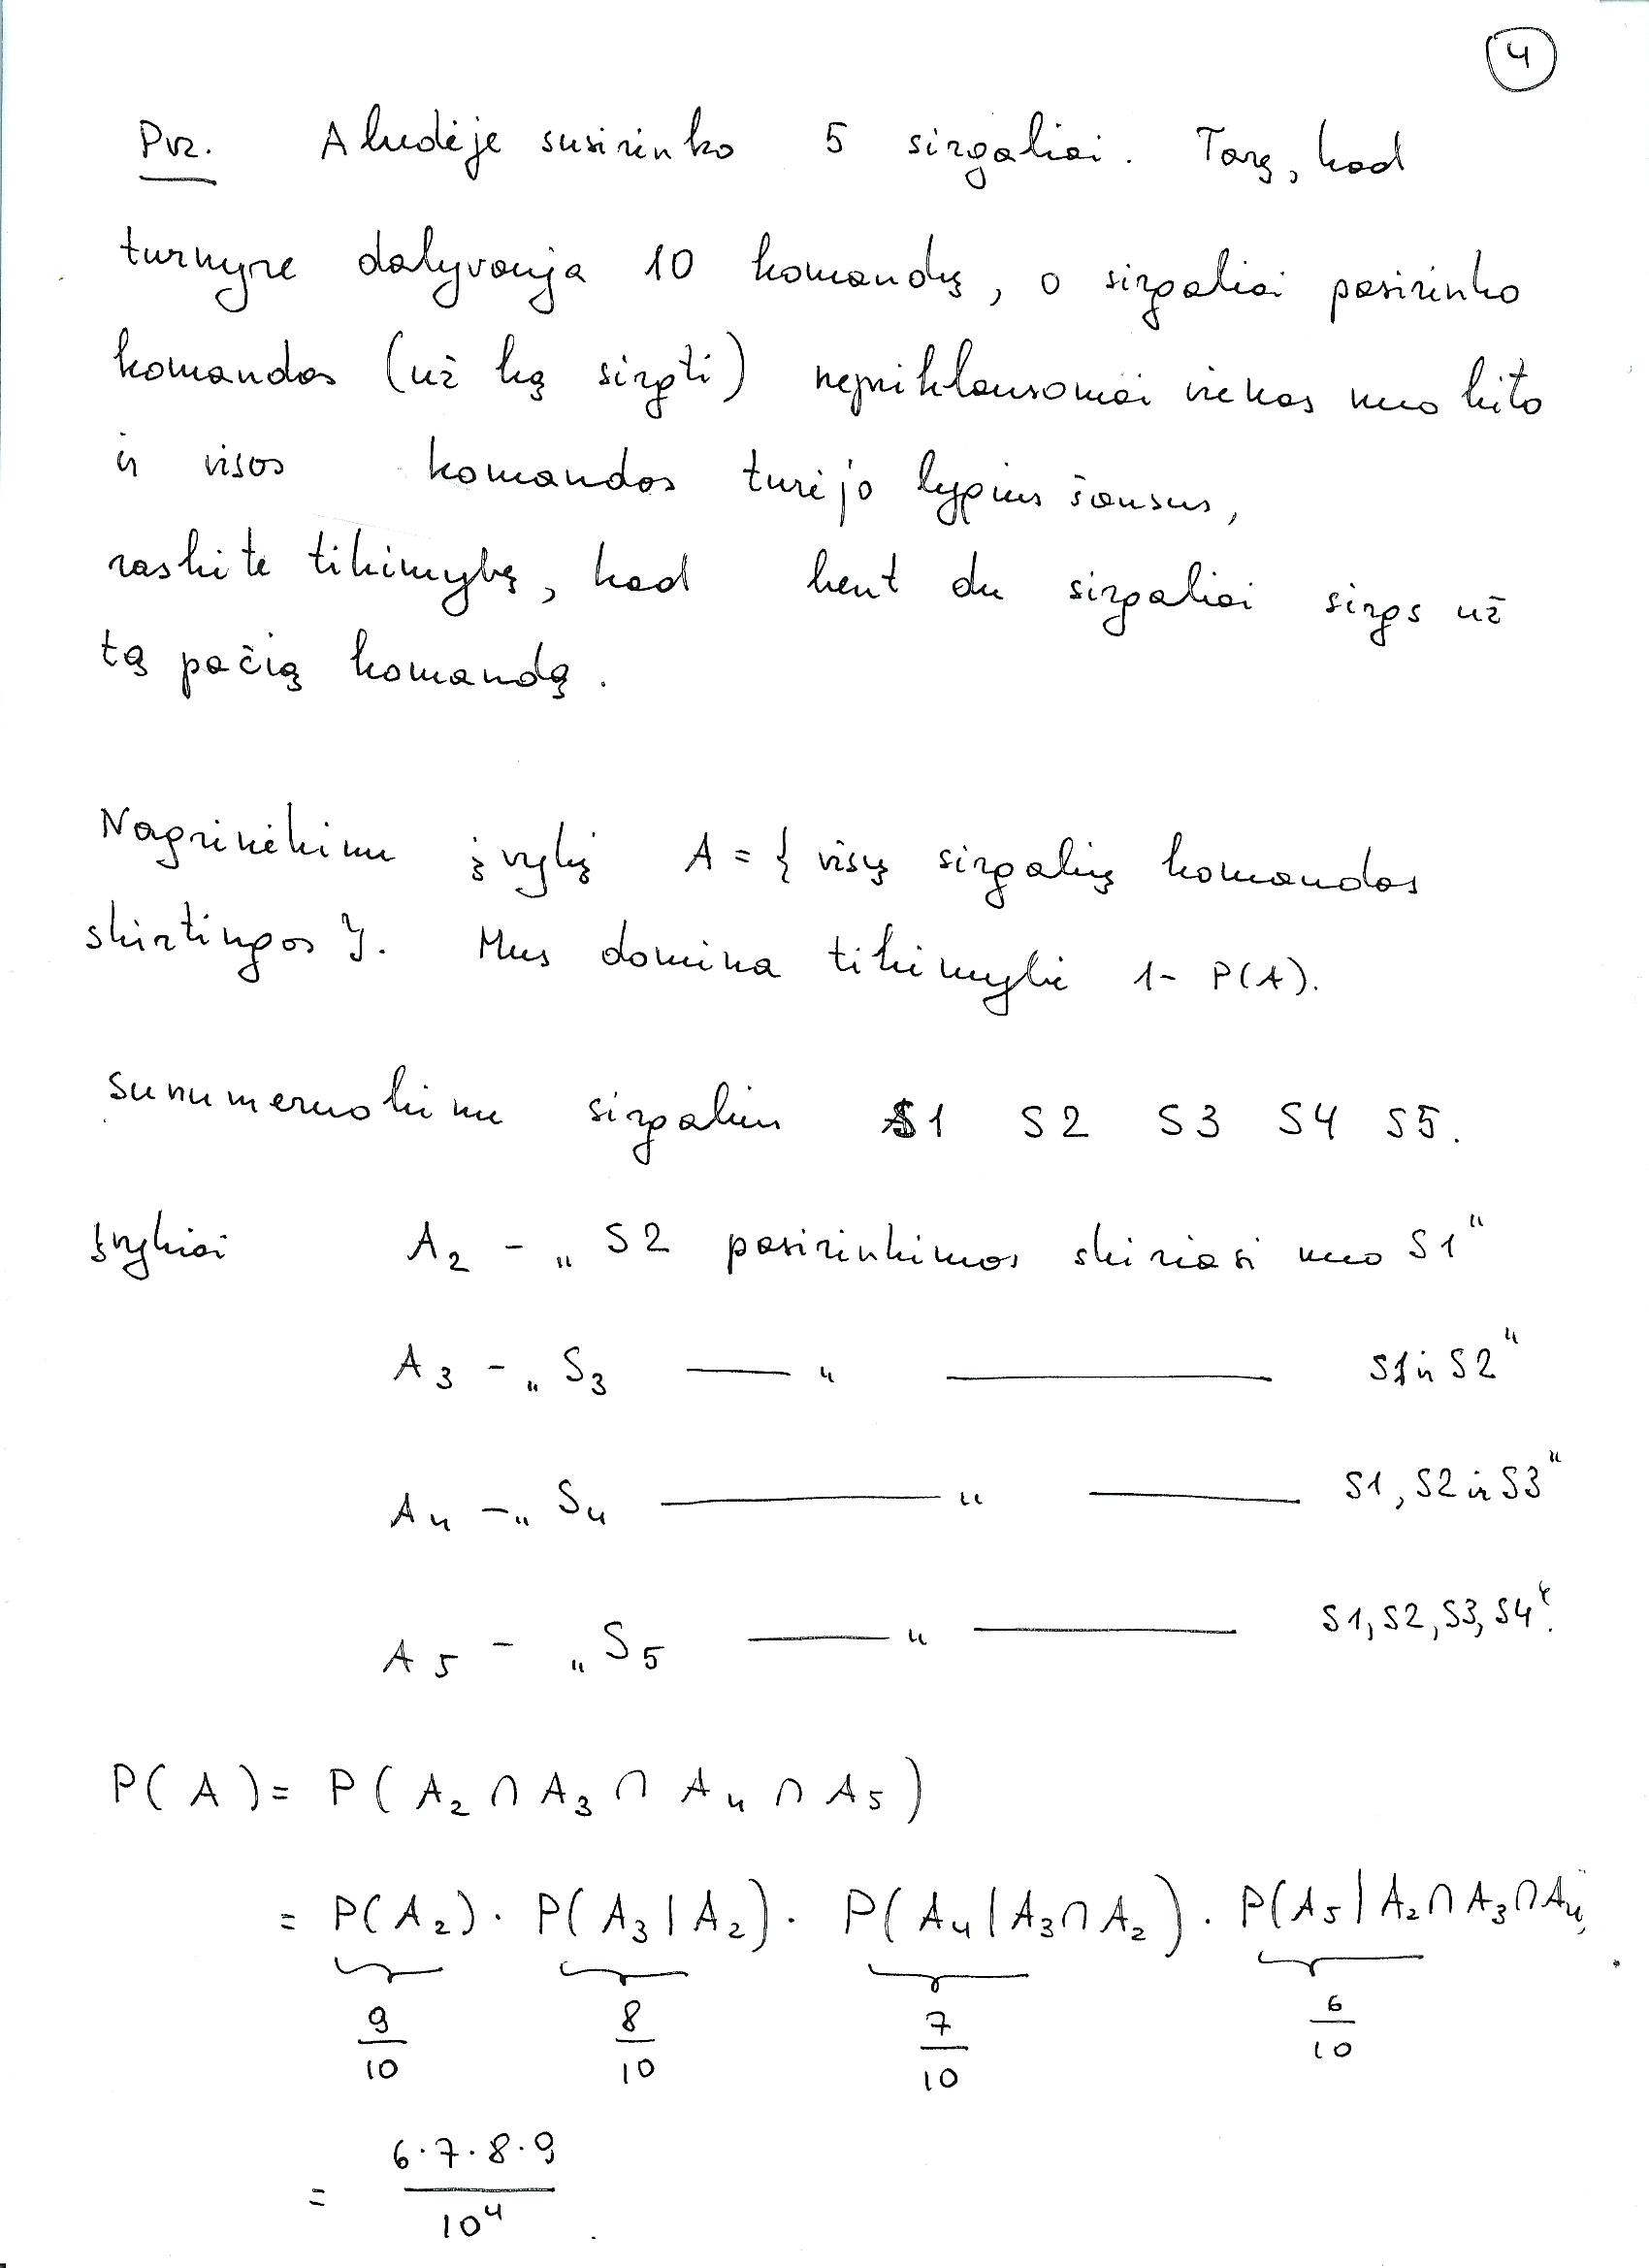 4
Pvz. Aludėje susirinko 5 sirgaliai. Tarę, kad
turnyre dalyvauja 10 komandų, o sirgaliai pasirinko
komandas (už ką sirgti) nepriklausomai vienas nuo kito
ir visos komandos turėjo lygius šansus,
raskite tikimybę, kad bent du sirgaliai sirgs už
tą pačią komandą.
Nagrinėkime įvykį A = { visų sirgalių komandos
skirtingos }. Mus domina tikimybė 1 - P(A).
Sunumeruokime sirgalius S1 S2 S3 S4 S5.
Įvykiai A₂ - „S2 pasirinkimas skiriasi nuo S1“
A₃ - „S₃ —— “ ———— S1 ir S2“
A₄ - „S₄ ———— “ ——— S1, S2 ir S3“
A₅ - „S₅ —— “ ——— S1, S2, S3, S4“.
P(A) = P(A₂ ∩ A₃ ∩ A₄ ∩ A₅)
= P(A₂) · P(A₃ | A₂) · P(A₄ | A₃ ∩ A₂) · P(A₅ | A₂ ∩ A₃ ∩ A₄)
9/10 8/10 7/10 6/10
= 6·7·8·9 / 10⁴.